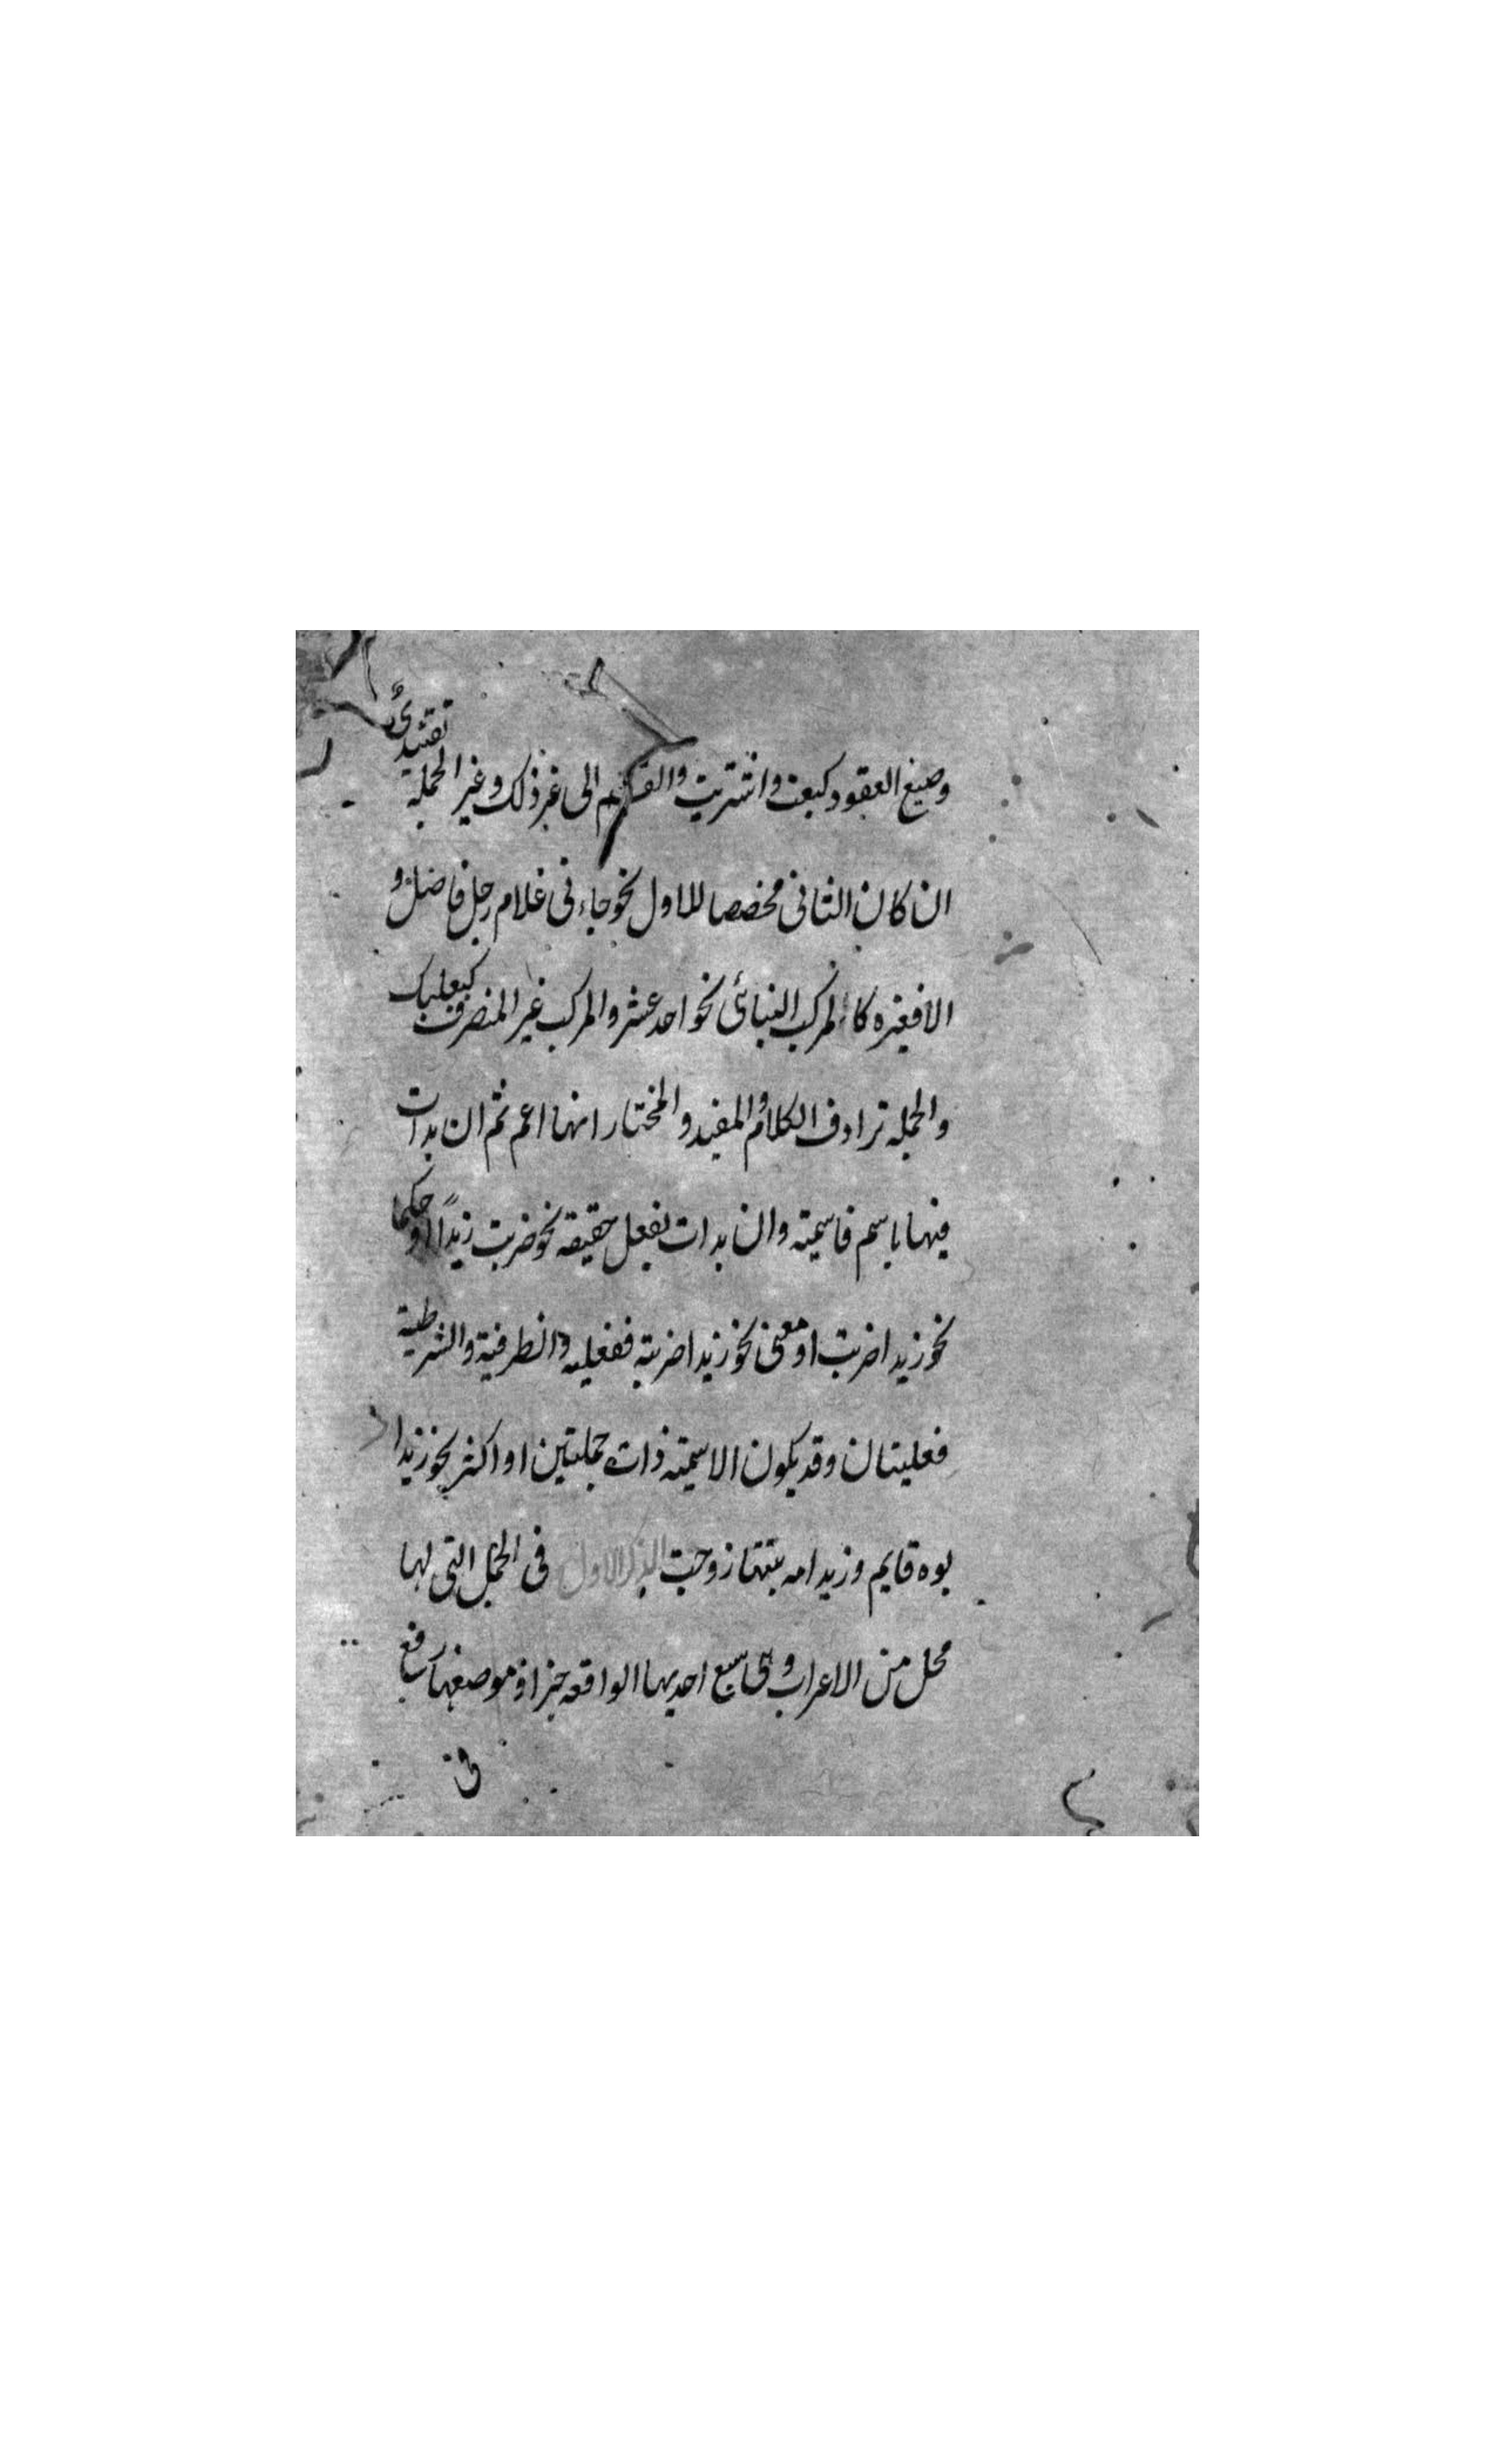 وصيغ العقود كبعت واشتريت والقسم الى غير ذلك وغير الجملة تقييدىٌ
ان كان الثانى مخصصا للاول نحو جاءنى غلام رجل فاضل و
الا فغيره كالمركب البنائى نحو احد عشر والمركب غير المنصرف كبعلبك
والجملة ترادف الكلام والمفيد والمختار انها اعم ثم ان بدات
فيها باسم فاسمية وان بدات بفعل حقيقه نحو ضربت زيداً او حكما
نحو زيدا ضربت او معنى نحو زيدا ضربته ففعليه والظرفية والشرطية
فعليتان وقد يكون الاسمية ذات جملتين او اكثر نحو زيد ا
بوه قايم وزيد امه بنتها زوجت الذكر الاول فى الجمل التى لها
محل من الاعراب وهى سبع احديها الواقعه خبرا وموضعها رفع